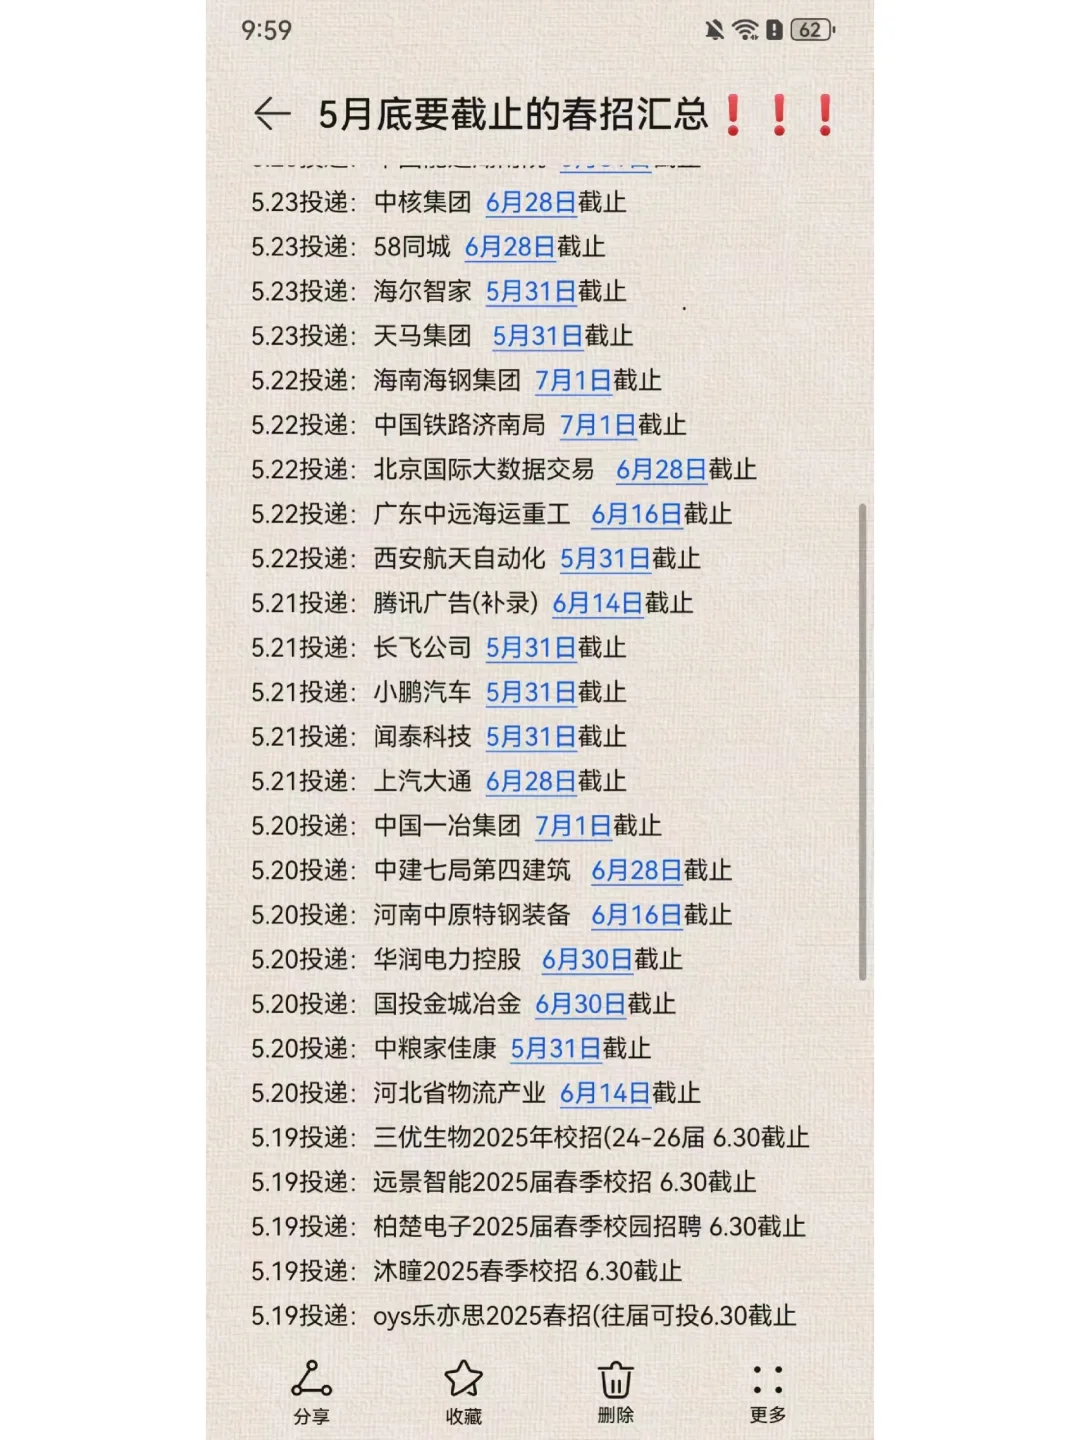 9:59
62
5月底要截止的春招汇总❗❗❗
5.23投递：中核集团 6月28日截止
5.23投递：58同城 6月28日截止
5.23投递：海尔智家 5月31日截止
5.23投递：天马集团 5月31日截止
5.22投递：海南海钢集团 7月1日截止
5.22投递：中国铁路济南局 7月1日截止
5.22投递：北京国际大数据交易 6月28日截止
5.22投递：广东中远海运重工 6月16日截止
5.22投递：西安航天自动化 5月31日截止
5.21投递：腾讯广告(补录) 6月14日截止
5.21投递：长飞公司 5月31日截止
5.21投递：小鹏汽车 5月31日截止
5.21投递：闻泰科技 5月31日截止
5.21投递：上汽大通 6月28日截止
5.20投递：中国一冶集团 7月1日截止
5.20投递：中建七局第四建筑 6月28日截止
5.20投递：河南中原特钢装备 6月16日截止
5.20投递：华润电力控股 6月30日截止
5.20投递：国投金城冶金 6月30日截止
5.20投递：中粮家佳康 5月31日截止
5.20投递：河北省物流产业 6月14日截止
5.19投递：三优生物2025年校招(24-26届 6.30截止
5.19投递：远景智能2025届春季校招 6.30截止
5.19投递：柏楚电子2025届春季校园招聘 6.30截止
5.19投递：沐瞳2025春季校招 6.30截止
5.19投递：oys乐亦思2025春招(往届可投6.30截止
分享 收藏 删除 更多